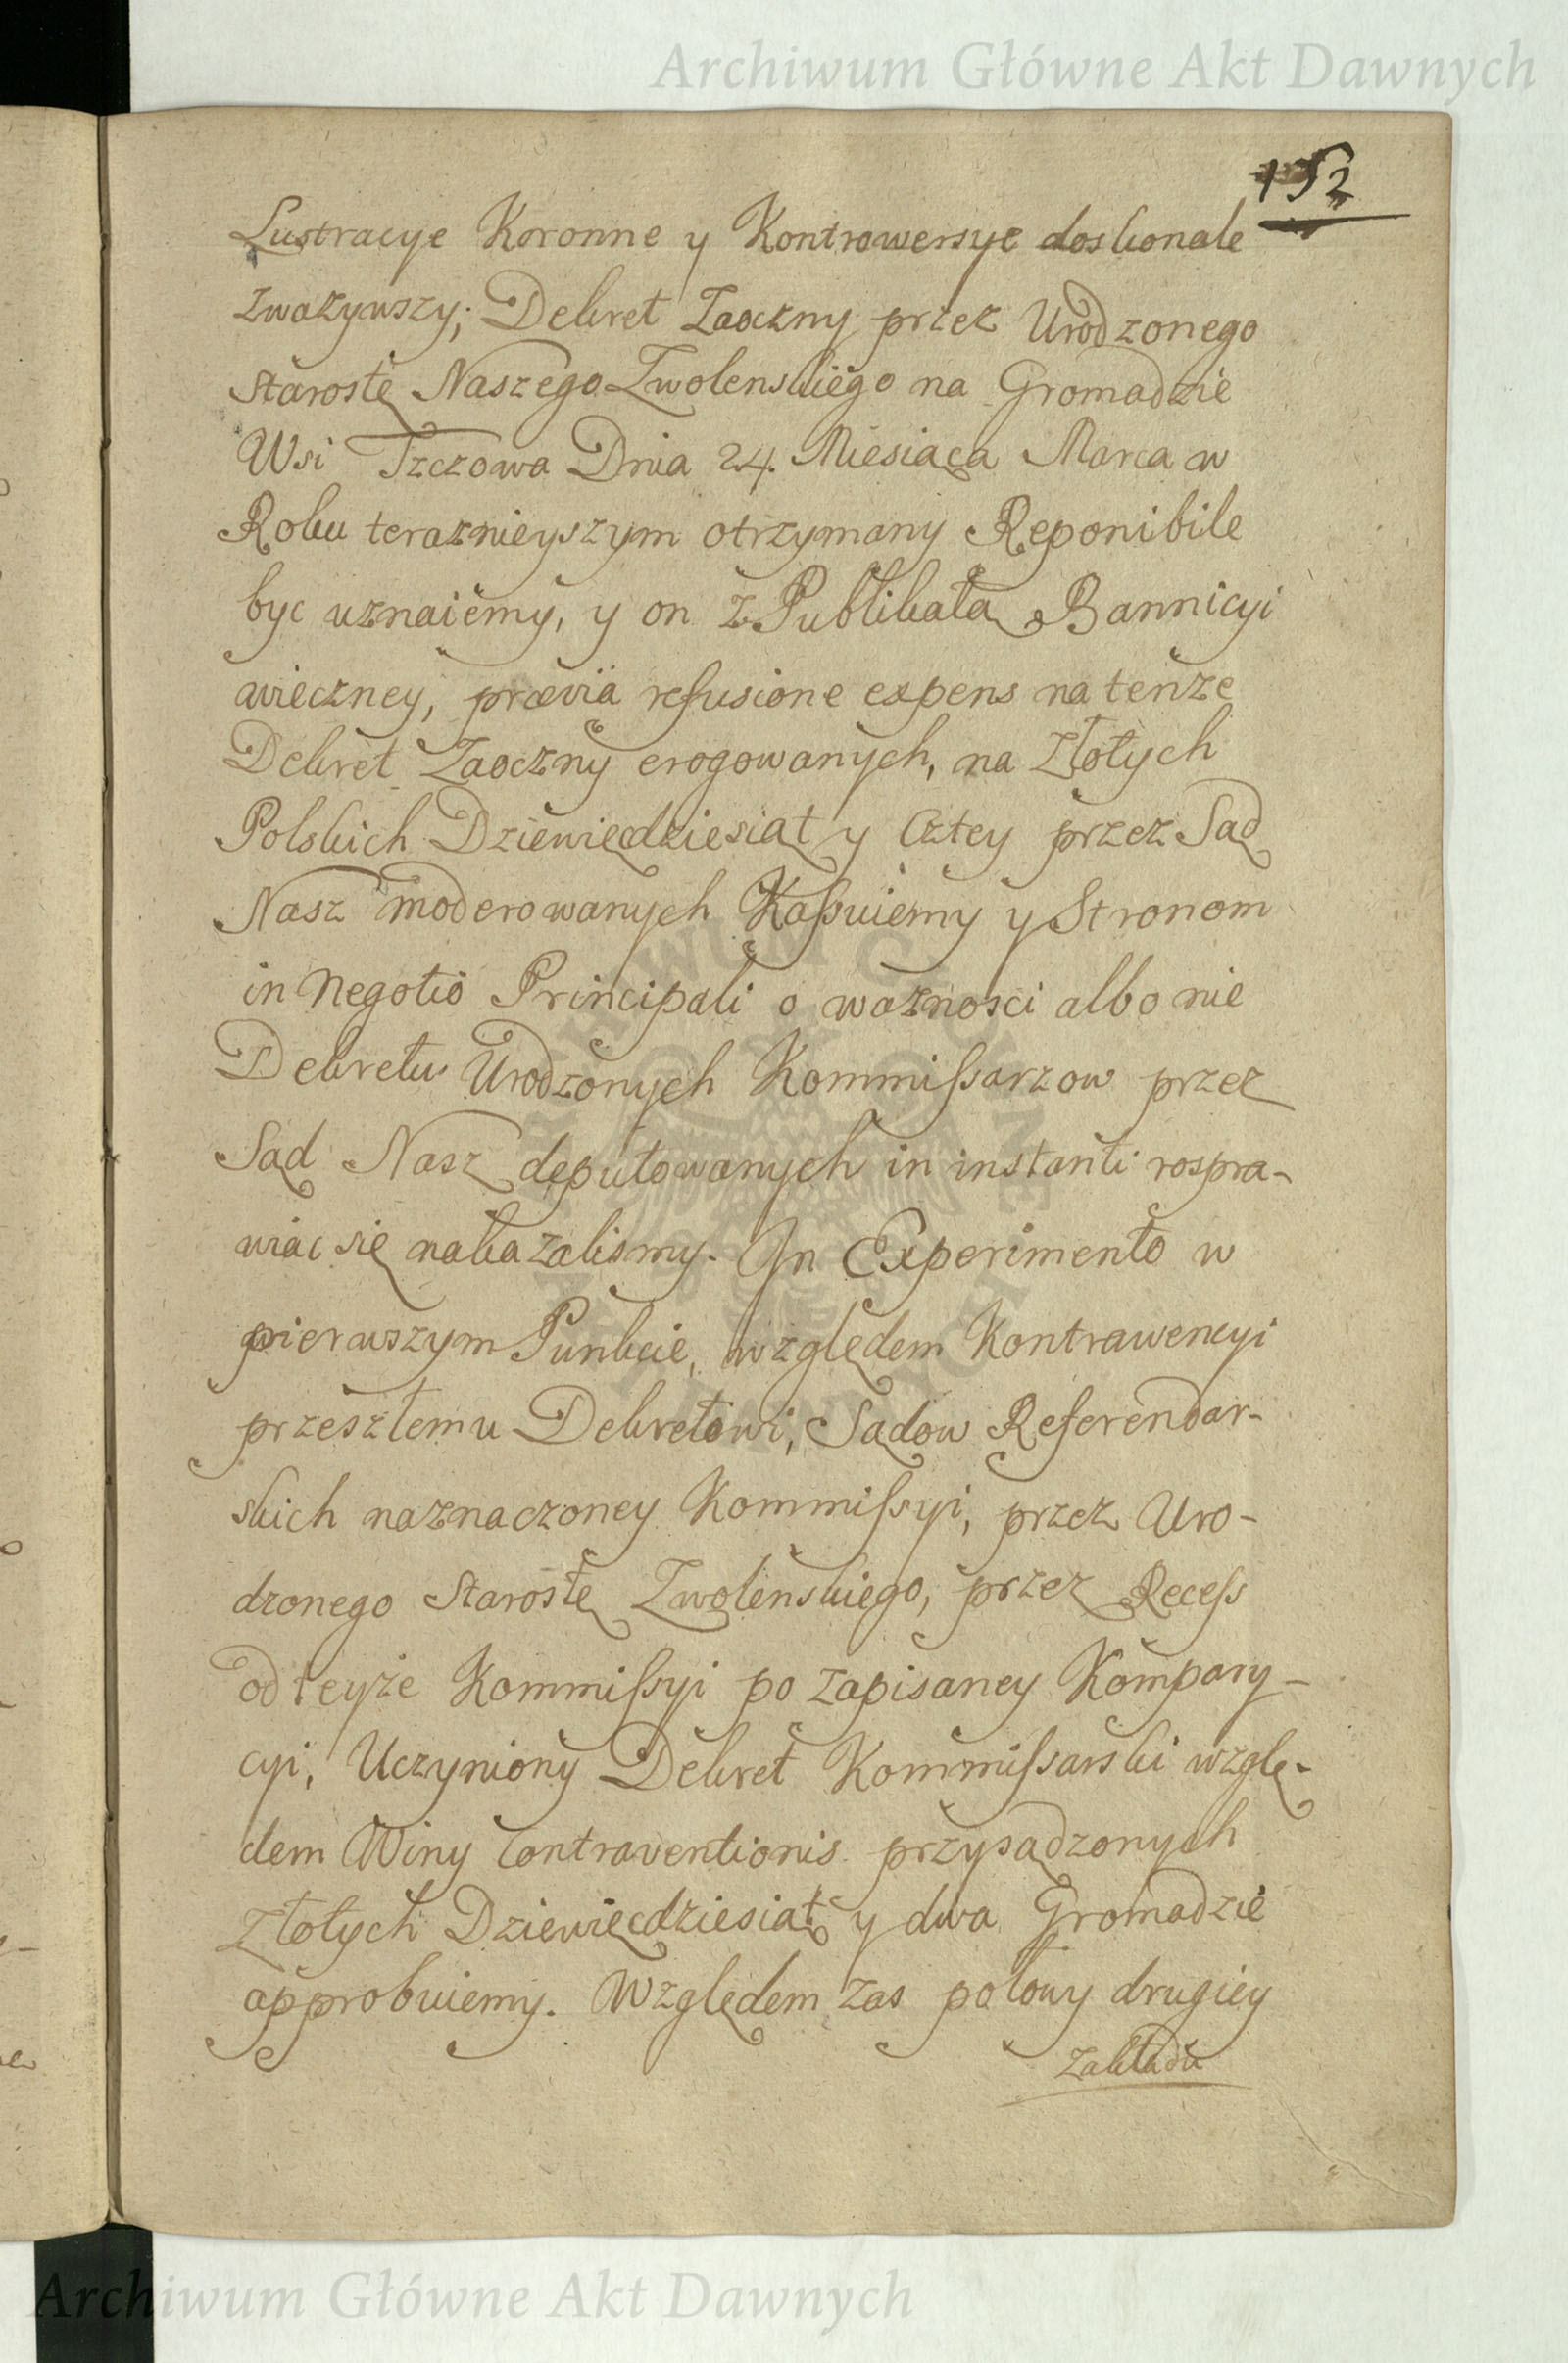 Archiwum Główne Akt Dawnych
152
Lustracye Koronne y Kontrowersye doskonale
zwazywszy; Dekret Zaoczny przez Urodzonego
Starostę Naszego Zwolenskiego na Gromadzie
Wsi Tzczowa Dnia 24. Miesiąca Marca w
Roku teraznieyszym otrzymany Reponibile
byc uznaiemy, y on z Publikatą Bannicyi
wieczney, prævia refusione expens na tenze
Dekret Zaoczny erogowanych, na Złotych
Polskich Dziewięcdziesiąt y Cztey przez Sąd
Nasz moderowanych Kassuiemy y Stronom
in Negotio Principali o wazności albo nie
Dekretu Urodzonych Kommissarzow przez
Sąd Nasz deputowanych in instanti rospra-
wiac się nakazalismy. In Experimento w
pierwszym Punkcie, względem Kontrawencyi
przeszłemu Dekretowi, Sądow Referendar-
skich naznaczoney Kommissyi, przez Uro-
dzonego Starostę Zwolenskiego, przez Recess
od teyże Kommissyi po zapisaney Kompary-
cyi, Uczyniony Dekret Kommissarski wzglę-
dem Winy Contraventionis przysądzonych
Złotych Dziewięcdziesiąt y dwa Gromadzie
approbuiemy. Względem zas połowy drugiey
Zakładu
Archiwum Główne Akt Dawnych